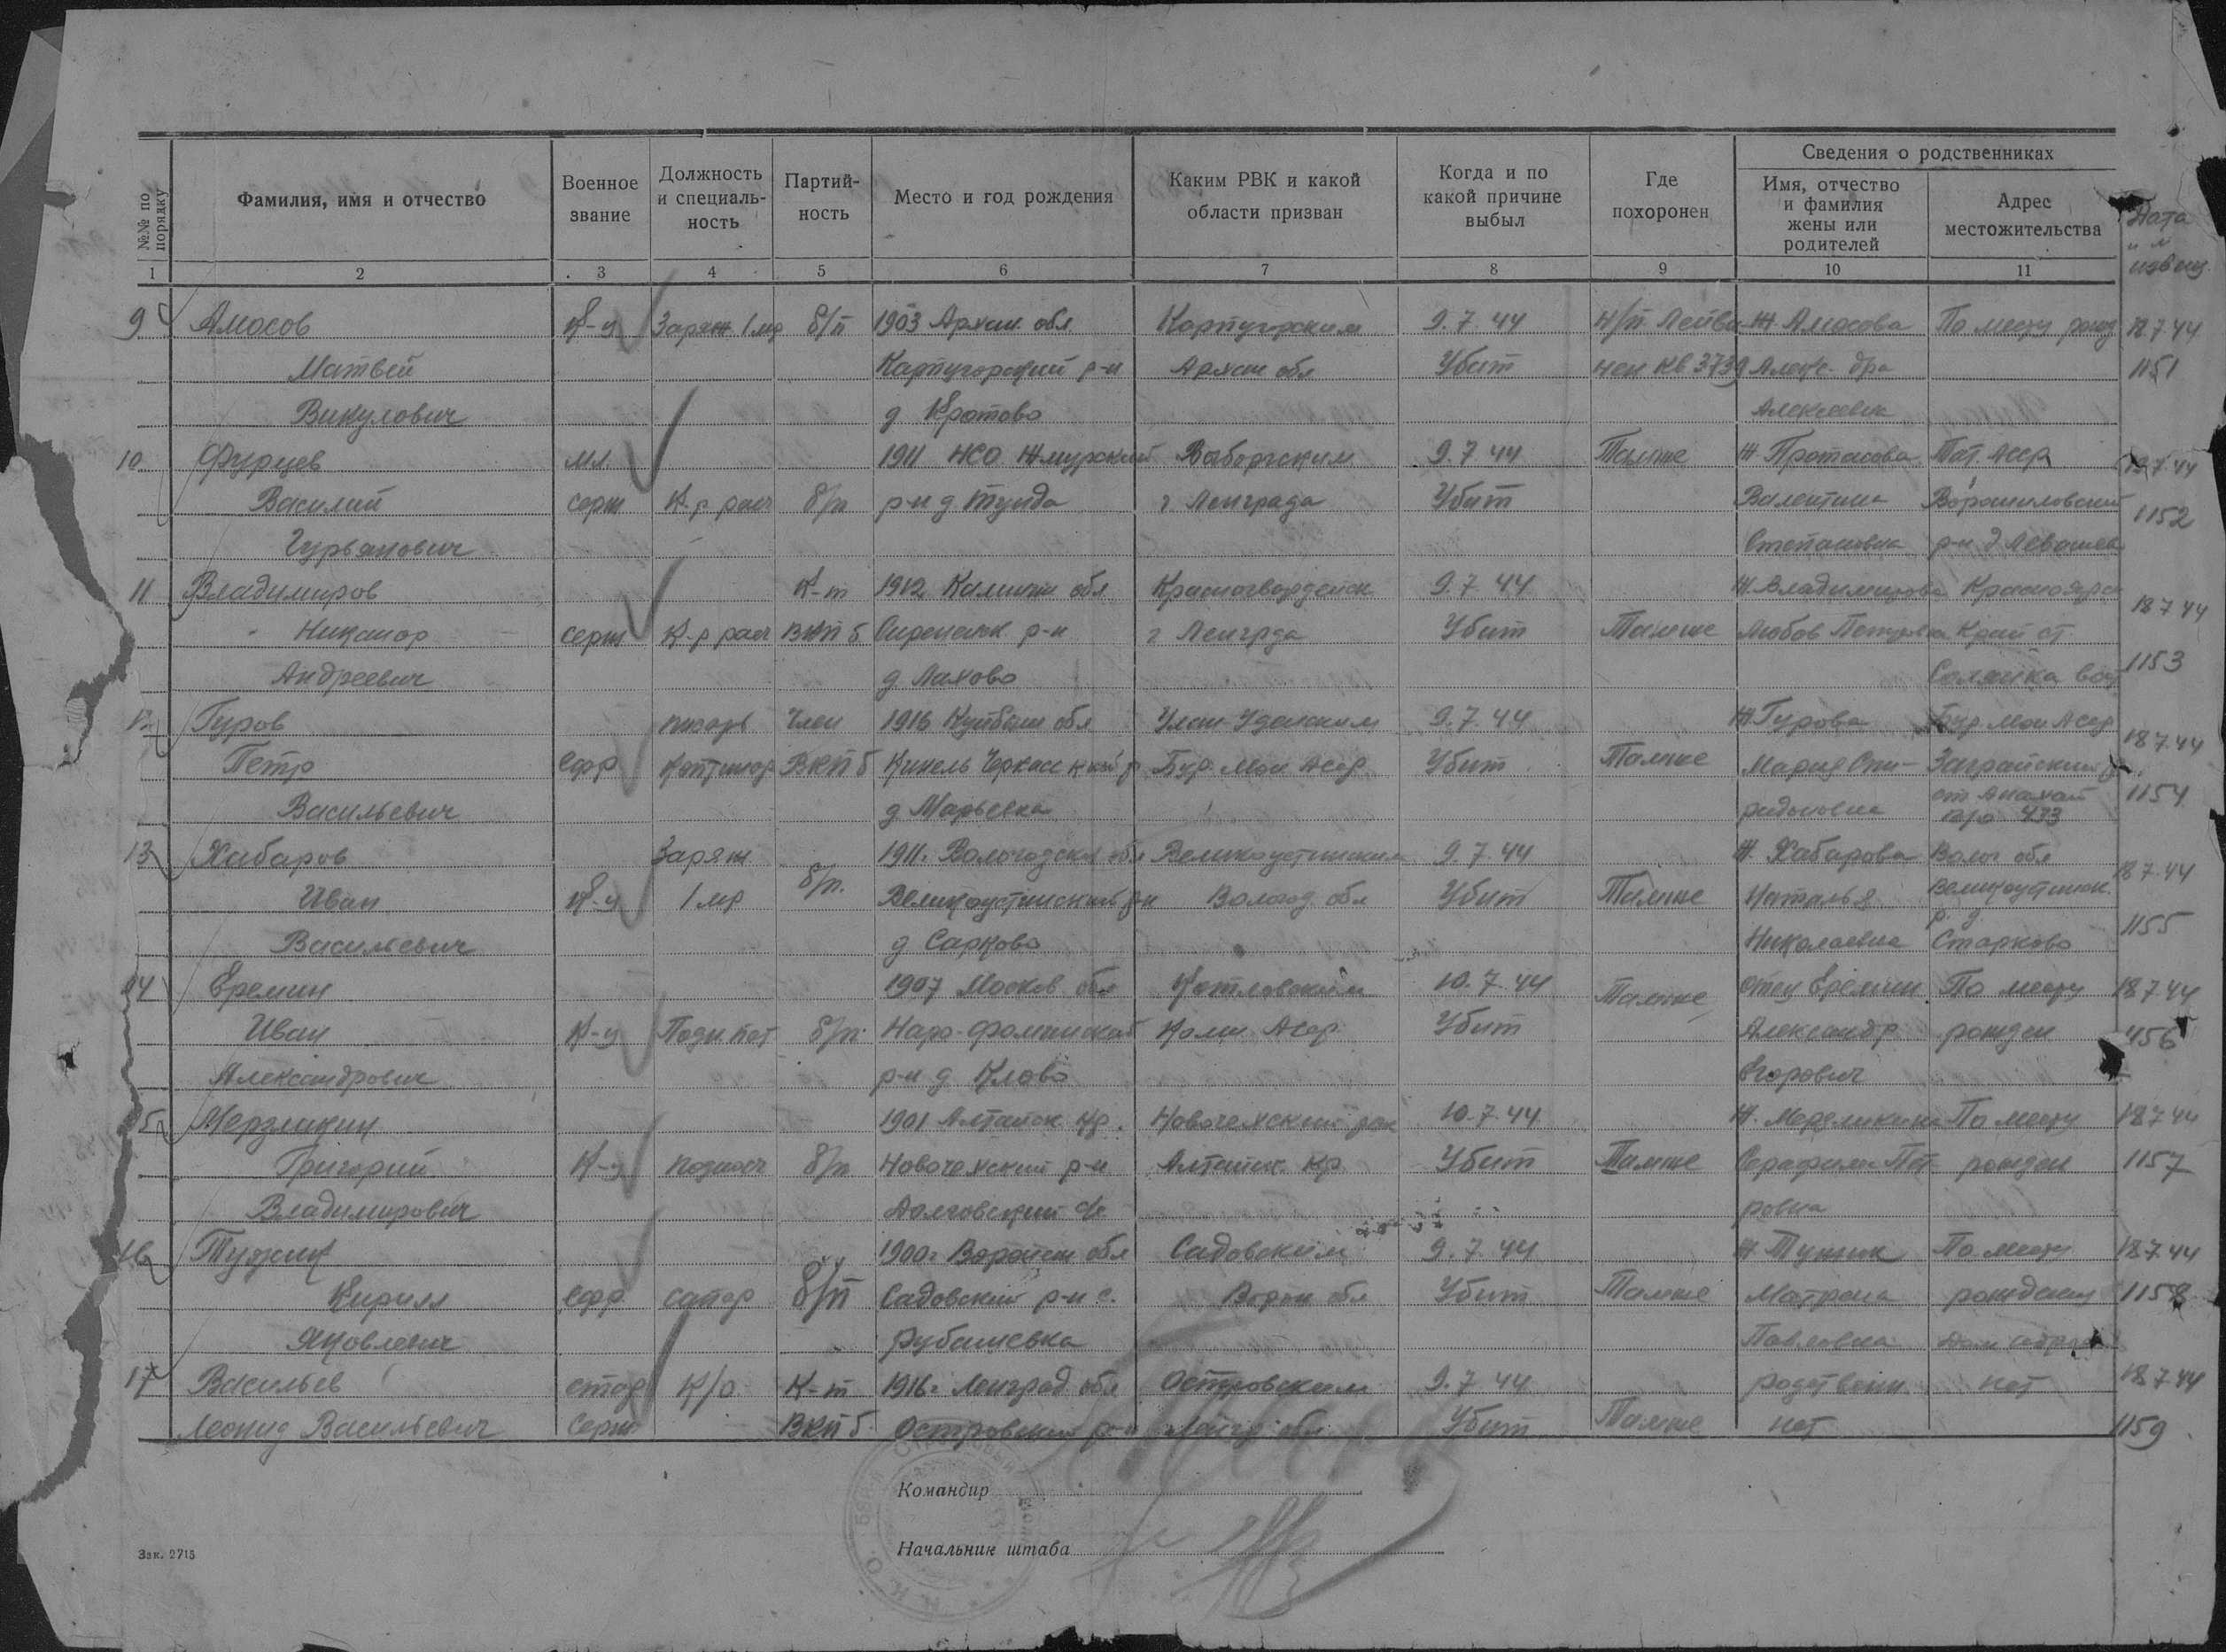 №№ по порядку
Фамилия, имя и отчество
Военное звание
Должность и специаль-ность
Партий-ность
Место и год рождения
Каким РВК и какой области призван
Когда и по какой причине выбыл
Где похоронен
Сведения о родственниках
Имя, отчество и фамилия жены или родителей
Адрес местожительства
Дата и № извещ.
1 2 3 4 5 6 7 8 9 10 11
9 Амосов к-ц Заряж. 1 мр б/п 1903 Архан. обл Карпугорским 9.7.44 н/п Лейви- Ж Амосова По месту рожд 18.7.44
Матвей Карпугорский р-н Архан обл Убит нен кв 3739 Алекс-дра 1151
Викулович д Кротово Алексеевна
10 Фурцев мл. 1911 Выборгским 9.7.44 Тамже Ж Протасова Тат. Асср 18.7.44
Василий серж К-р расч б/п р-н д. Тунда г Ленграда Убит Валентина Ворошиловский 1152
Гурьянович Степановна р-н д
11 Владимиров К-т 1912 Калинин обл Красногвардейск 9.7.44 Ж. Владимирова Красноярс 18.7.44
Никанор серж К-р расч ВКП б р-н г Ленгрда Убит Тамже Любов Край ст.
Андреевич д Лахово Солянка 1153
Гуров писарь Член 1916 Куйбыш обл Улан-Удэнским 9.7.44 Ж Гурова Бур. Мон Асср 18.7.44
Петр Ефр Каптенар ВКП б Кинель Черкасс кий р Бур. Мон Асср Убит Тамже Мария Спи-
Васильевич д Марьевка ридоновна 433 1154
13 Хабаров Заряж 1911г. Вологодская обл Великоустюгским 9.7.44 Ж. Хабарова Волог обл 18.7.44
Иван к-ц 1 мр б/п. Великоустюгский р-н Волог обл Убит Тамже Наталья Великоустюгск.
Васильевич д Сарково Николаевна р. д Старково 1155
14 Еремин 1907 Москов обл 10.7.44 Тамже отец Еремин По месту 18.7.44
Иван К-ц б/п. Наро-Фоминский Коми Асср Убит Александр рожден 1156
Александрович р-н д Клово Егорович
15 Мерзликин 1901 Алтайск Кр. 10.7.44 Ж. Мерзликина По месту 18.7.44
Григорий К-ц поднос б/п р-н Алтайск. Кр Убит Тамже Серафима Пет рожден 1157
Владимирович Долговский с/с ровна
16 Тужик 1900г Воронеж обл Садовским 9.7.44 Ж Тужик По месту 18.7.44
Кирилл Ефр сапер б/п Садовский р-н с. Ворон обл Убит Тамже Матрена рождения 1158
Яковлевич Рубашевка Павловна
17 Васильев стар К/о К-т 1916г Ленград обл Островским 9.7.44 родствен нет 18.7.44
Леонид Васильевич серж ВКП б Островский р-н Ленгр обл Убит Тамже нет 1159
Командир
Начальник штаба
Зак. 2715